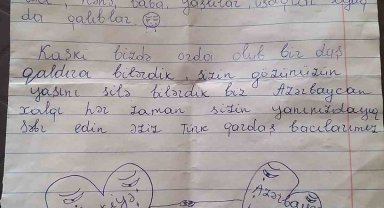 nənə, baba, yaşlılar, uşaqlar
da qalıblar
Kaşki bizdə orda olub bir daş
qaldıra bilərdik, sizin gözünüzün
yaşını silə bilərdik biz Azərbaycan
xalqı hər zaman sizin yanınızdayıq
Səbr edin əziz Türk qardaş bacılarımız
Azərbay